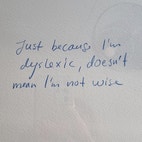 Just because I'm
dyslexic, doesn't
mean I'm not wise